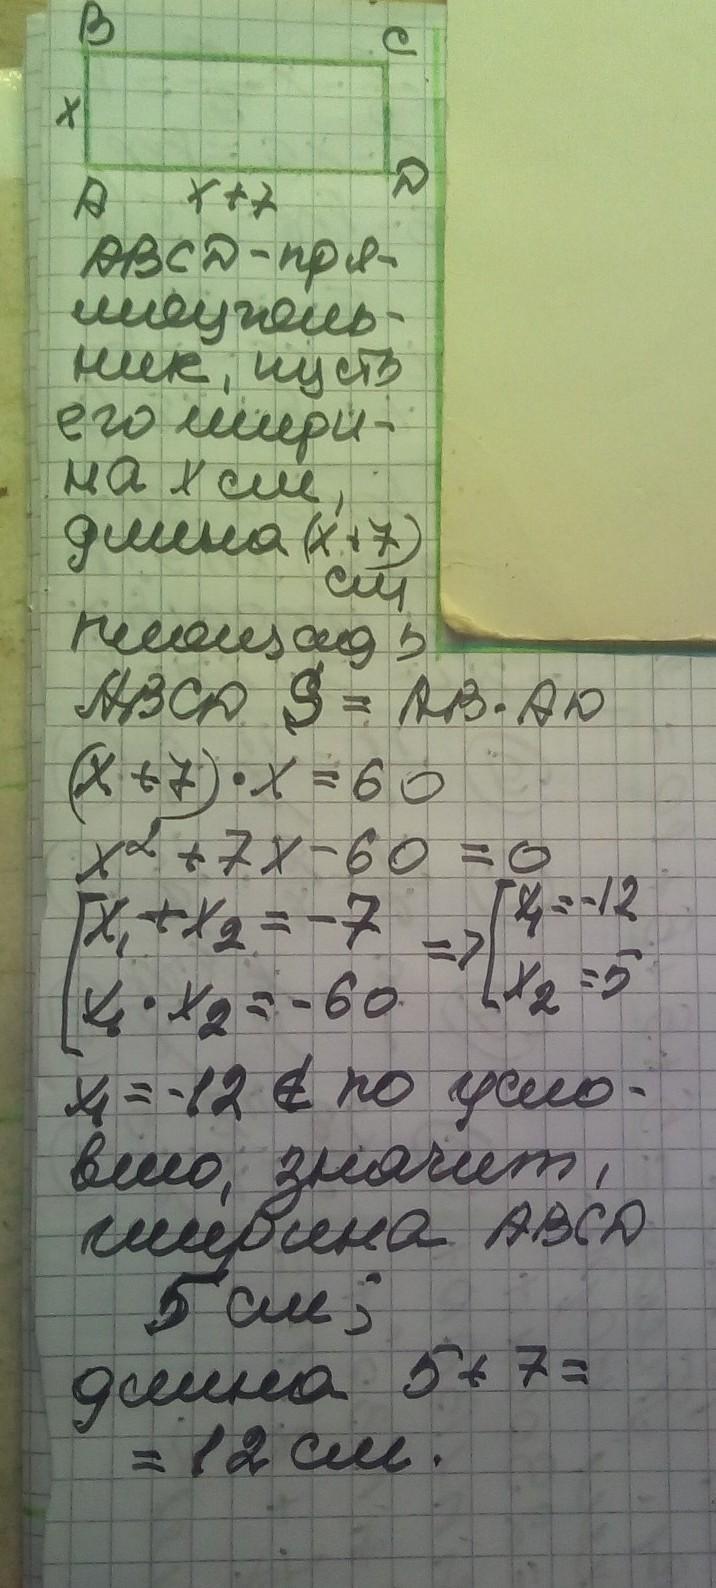 B C
x
A x+7 D
ABCD - пря-
моуголь-
ник, пусть
его шири-
на x см,
длина (x+7)
см
площадь
ABCD S = AB·AD
(x+7)·x=60
x²+7x-60=0
[x₁+x₂=-7 => [x₁=-12
x₁·x₂=-60 x₂=5
x₁=-12 ∉ по усло-
вию, значит,
ширина ABCD
5 см;
длина 5+7=
=12 см.